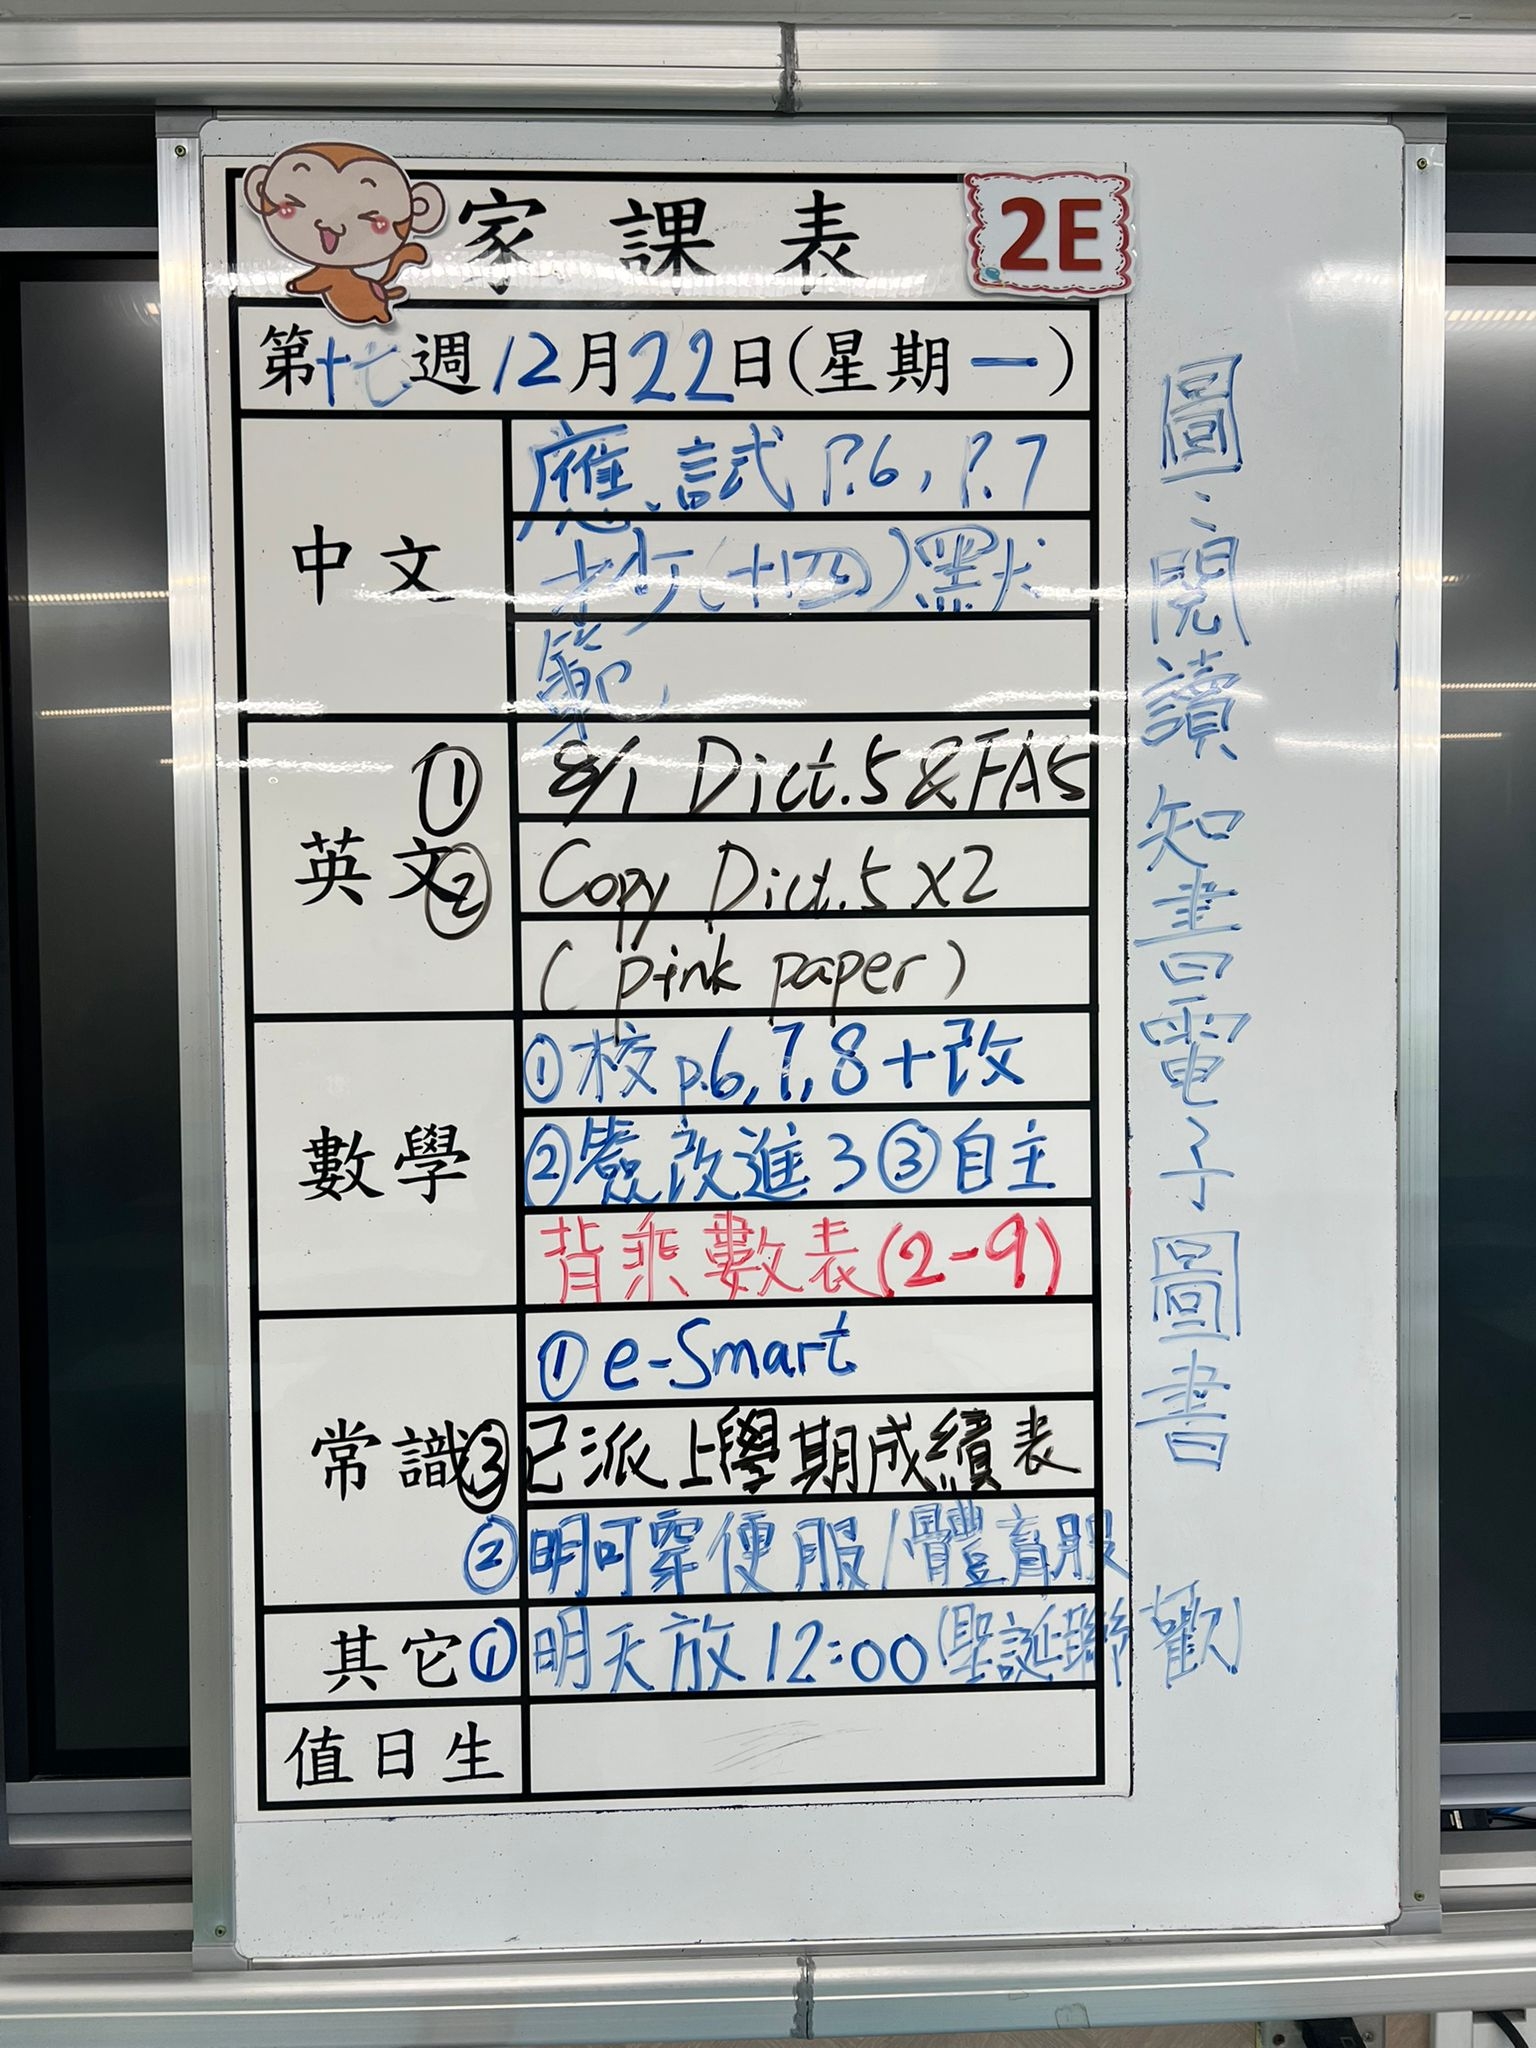 家課表 2E
第十七週12月22日(星期一)
中文
應試 P.6, P.7
抄(十四)默
範
英文
① 8/1 Dict.5 & FA5
② Copy Dict.5 x2
(pink paper)
數學
① 校 p.6, 7, 8 + 改
② 簽改進3 ③ 自主
背乘數表(2-9)
常識
① e-Smart
③ 已派上學期成績表
② 明可穿便服/體育服
其它
① 明天放12:00(聖誕聯歡)
值日生
圖:閱讀知書電子圖書